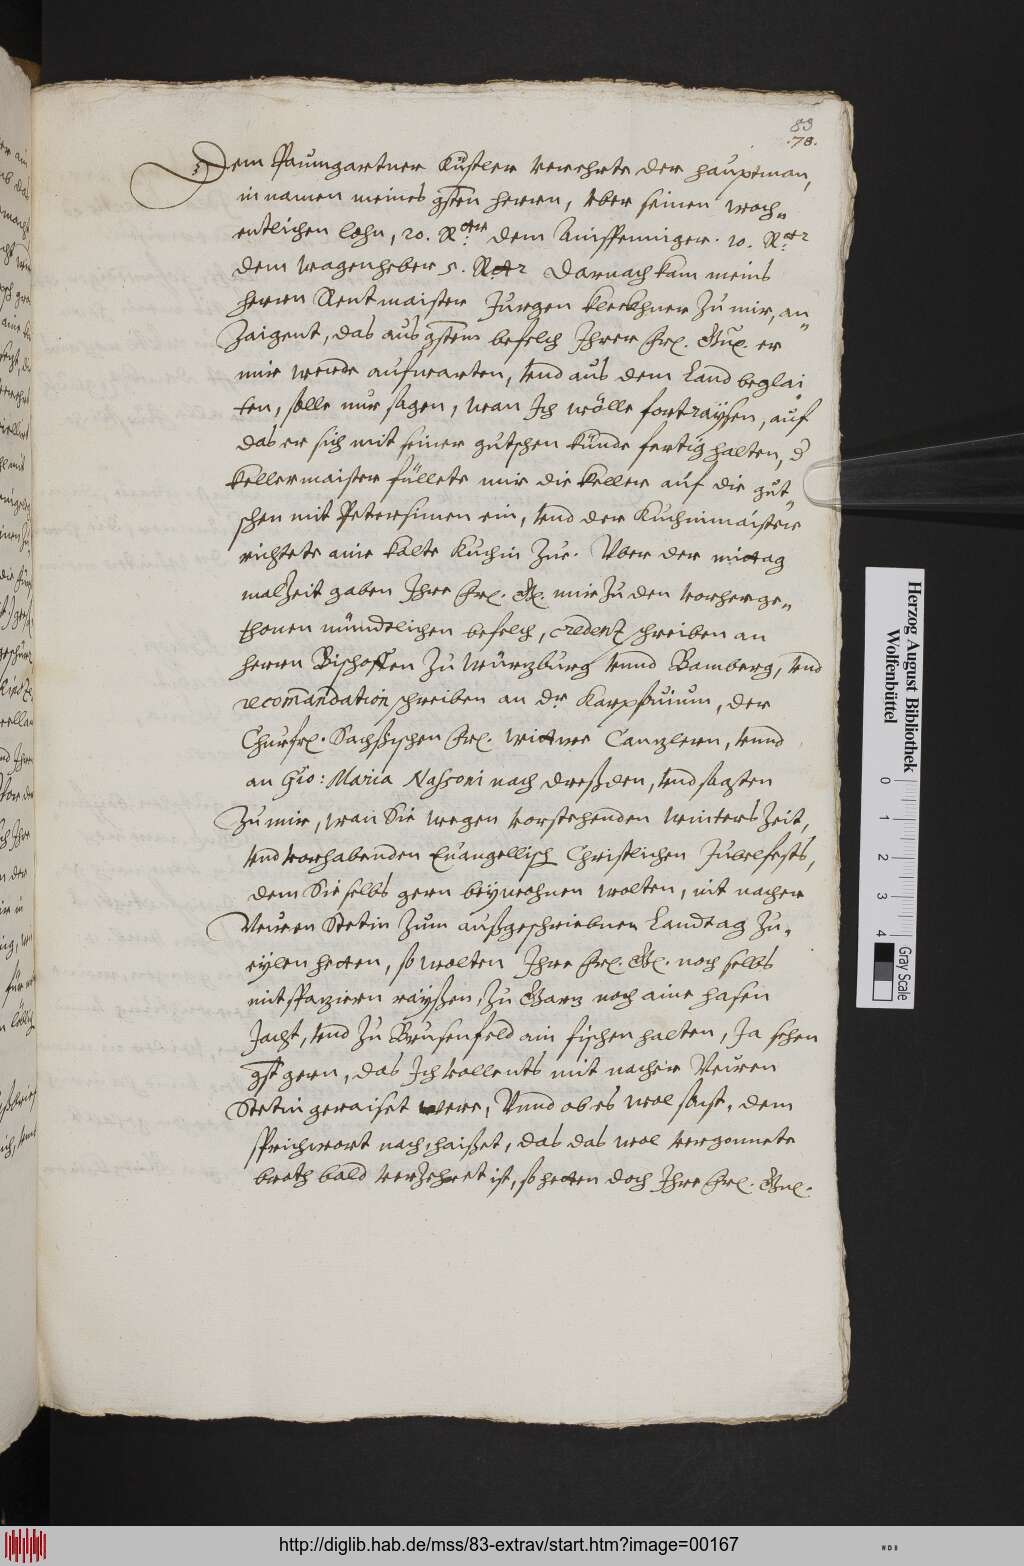 83
.78.
Dem Paumgartner Küstler verehrte der hauptman,
in namen meines gsten herrn, vber seinen woch„
entlichen lohn, 20. Rtr dem Ainspenniger. 10. Rtr
dem wagenheber 5. Rtr Darnach kam meins
herrn Rentmaister Jurgen Kleckhner zu mir, an„
Zaigent, das aus gstem befelch Ihrer Frl. Gn. er
mir werde aufwarten, vnd aus dem Land beglai„
ten, solle nur sagen, wan Ich wölle fortraysen, auf
das er sich mit seiner gutschen künde fertig halten, d
kellermaister füllete mir die keller auf die gut„
schen mit Petersimen ein, vnd der Kuchinmaister
richtete aine kalte Kuchin zue. Vber der mittag
malzeit gaben Ihre Frl. G. mir zu den vorherge„
thonen mündtlichen befelch, credenz schreiben an
herrn Bischoffen zu Würzburg vnnd Bamberg, vnd
recomandation schreiben an dr. Karpfzuium, der
Churfrl. Sachsischen Frl. wittwe Canzlern, vnnd
an Gio: Maria Nassoni nach dreßden, vnd sagten
zu mir, wan Sie wegen vorstehenden winters Zeit,
vnd vorhabenden Euangellisch Christlichen Jubelfests,
dem Sie selbs gern beywohnen wolten, nit nacher
Neuen Stetin zum außgeschriebnen Landtag zu„
eylen hetten, so wolten Ihre Frl. G. noch selbs
mit spazieren rayßen, zu Garz noch aine hasen
Jacht, vnd zu Brusenfeld ain fischen halten, Ja sehen
gst gern, das Ich vollents mit nacher Neuen
Stetin geraiset were, Vnnd ob es wol sonst, dem
sprichwort nach, haißet, das das wol vergonnete
broth bald verzehret ist, so hetten doch Ihre Frl. Gn.
Herzog August Bibliothek
Wolfenbüttel
0 1 2 3 4
Gray Scale
http://diglib.hab.de/mss/83-extrav/start.htm?image=00167
WDB